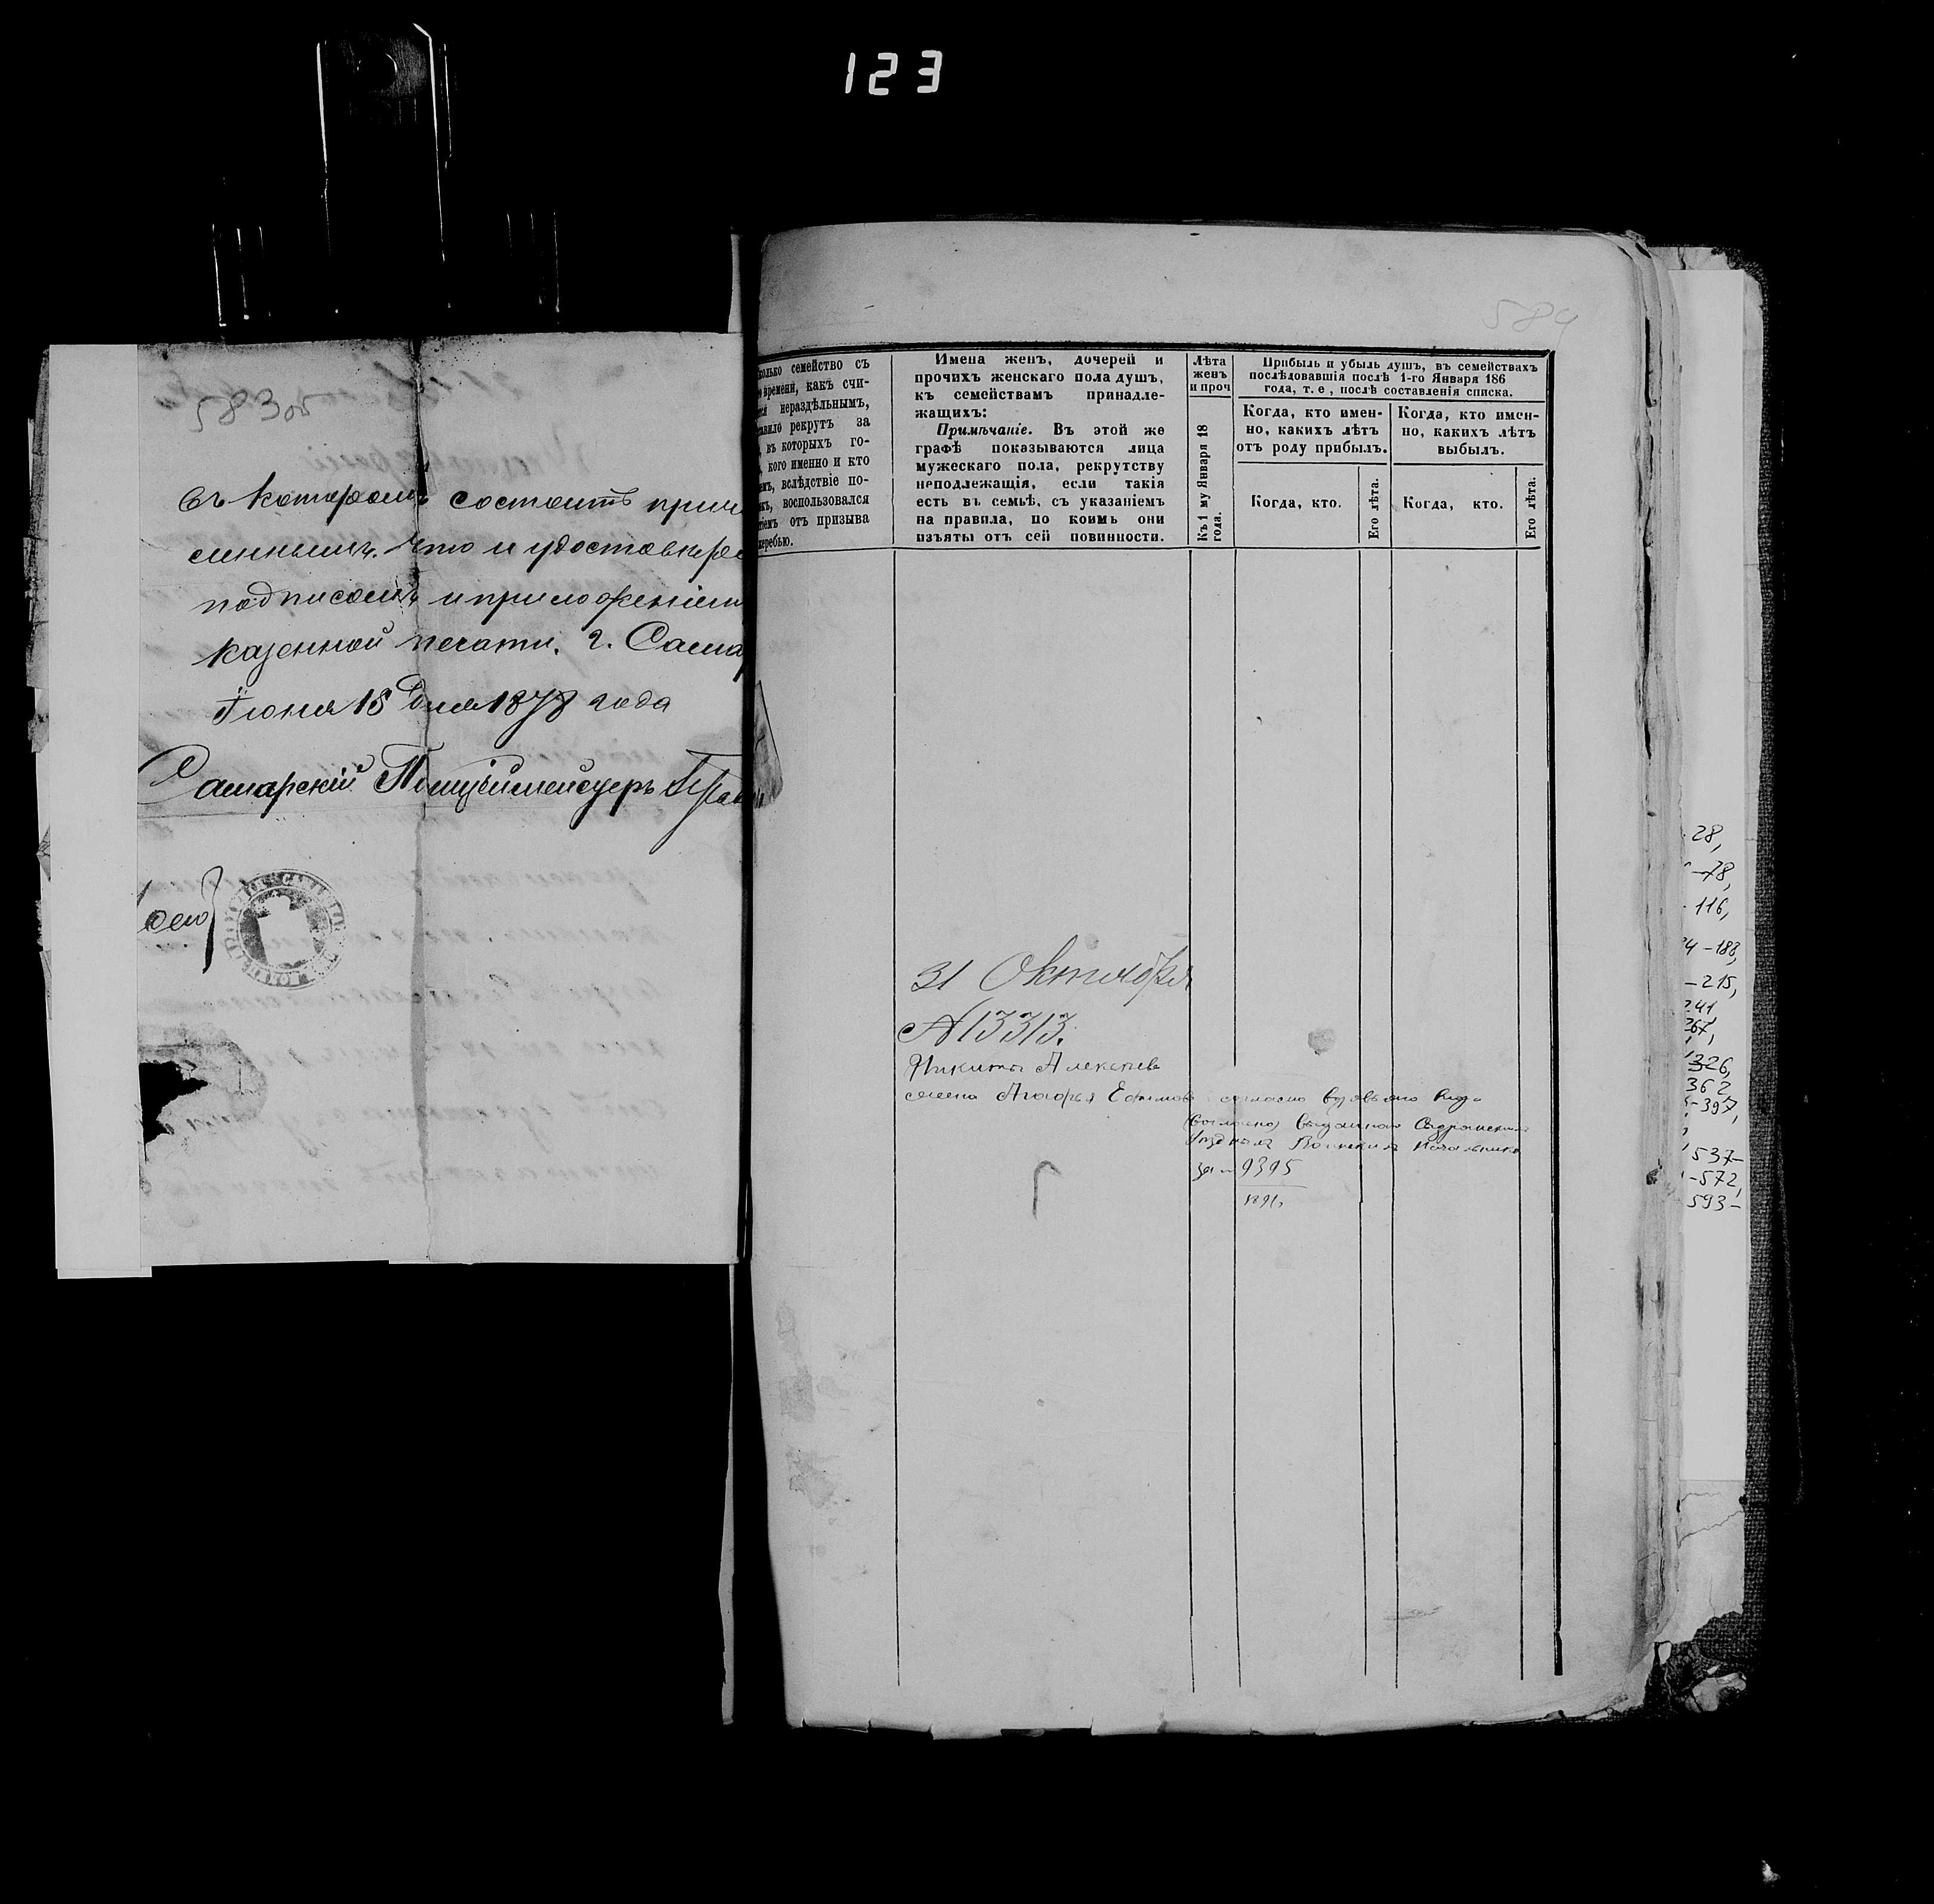 123
583об
въ которомъ состоитъ
что и удостовѣре
подписомъ и приложеніем
казенной печати. г. Самар
Іюня 18 дня 1878 года
Самарскій Полицеймейстеръ
584
колько семейство съ
времени, какъ счи-
нераздѣльнымъ,
рекрутъ за
въ которыхъ го-
кого именно и кто
вслѣдствіе по-
воспользовался
отъ призыва
жеребью.
Имена женъ, дочерей и
прочихъ женскаго пола душъ,
къ семействамъ принадле-
жащихъ:
Примѣчаніе. Въ этой же
графѣ показываются лица
мужескаго пола, рекрутству
неподлежащія, если такія
есть въ семьѣ, съ указаніемъ
на правила, по коимъ они
изъяты отъ сей повинности.
Лѣта
женъ
и проч
Къ 1 му Января 18
года.
Прибыль и убыль душъ, въ семействахъ
послѣдовавшія послѣ 1-го Января 186
года, т. е , послѣ составленія списка.
Когда, кто имен-
но, какихъ лѣтъ
отъ роду прибылъ.
Когда, кто имен-
но, какихъ лѣтъ
выбылъ.
Когда, кто.
Его лѣта.
Когда, кто.
Его лѣта.
31 Октября
№ 13313.
Никиты Алексѣев
жена Ефимов согласно
Воинскимъ Начальник
за № 9395
1891.
28,
-78,
116,
-188,
-215,
241
267,
326,
362
-397,
537-
-572,
593-